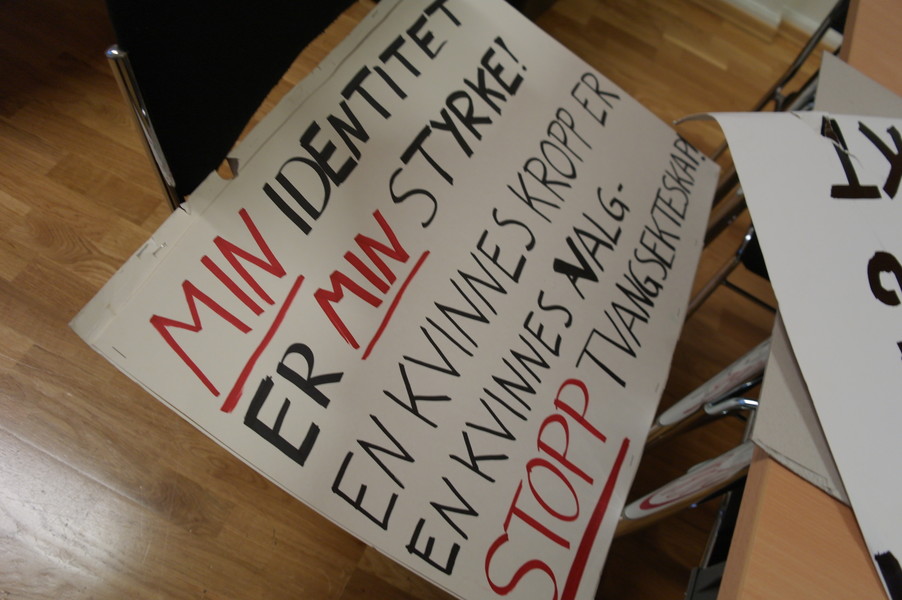 MIN IDENTITET
ER MIN STYRKE!
EN KVINNES KROPP ER
EN KVINNES VALG-
STOPP TVANGSEKTESKAP!